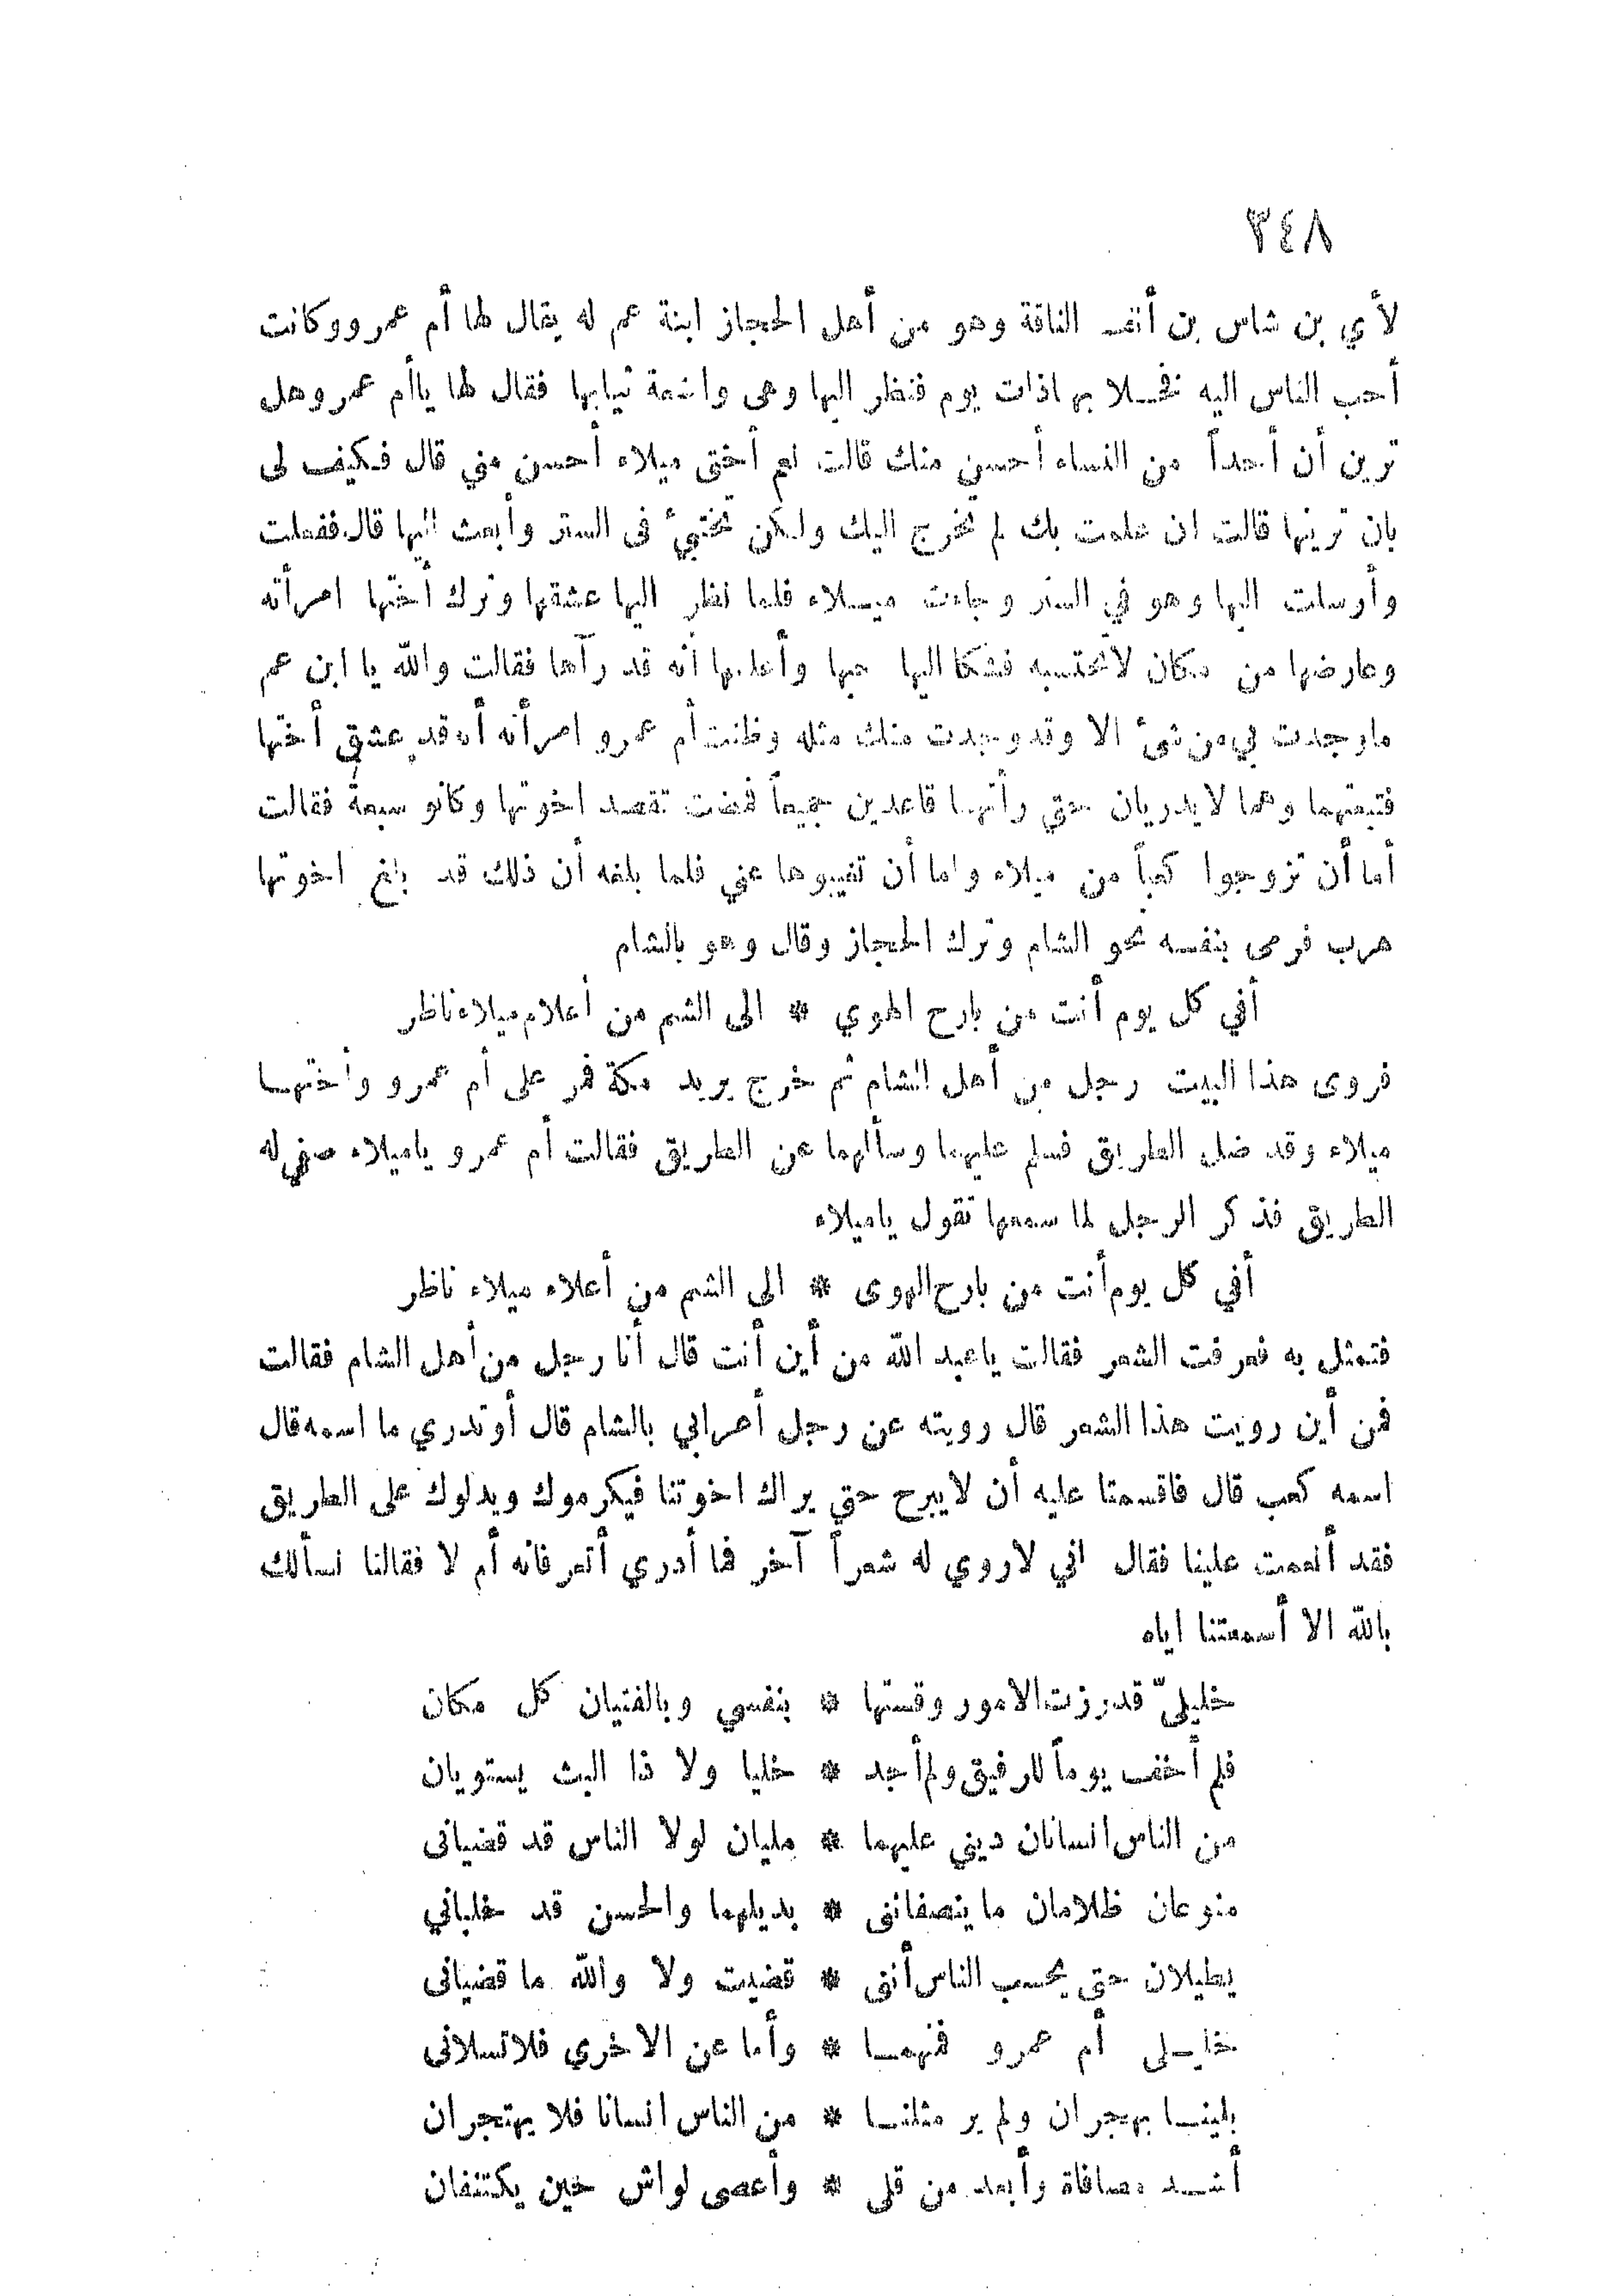 ٣٤٨
لأي بن شاس بن أنف الناقة وهو من أهل الحجاز ابنة عم له يقال لها أم عمرو وكانت
أحب الناس اليه فخـلا بها ذات يوم فنظر اليها وهى واضعة ثيابها فقال لها ياأم عمرو هل
ترين أن أحداً من النساء أحسن منك قالت نعم أختى ميلاء أحسن مني قال فكيف لى
بان ترينها قالت ان علمت بك لم تخرج اليك ولكن تختبئ فى الستر وأبعث اليها قال ففعلت
وأرسلت اليها وهو في الستر وجاءت ميـلاء فلما نظر اليها عشقها وترك أختها امرأته
وعارضها من مكان لاتحتسبه فشكا اليها حبها وأعلمها أنه قد رآها فقالت والله يا ابن عم
ماوجدت بي من شئ الا وقد وجدت منك مثله وظنت أم عمرو امرأته أنه قد عشق أختها
فتبعتهما وهما لايدريان حتي رأتهما قاعدين جميعاً فمضت تقصد اخوتها وكانو سبعة فقالت
أما أن تزوجوا كعباً من ميلاء واما أن تغيبوها عني فلما بلغه أن ذلك قد بلغ اخوتها
هرب فرمى بنفسه نحو الشام وترك الحجاز وقال وهو بالشام
أفي كل يوم أنت من بارح الهوي * الى الشم من أعلام ميلاء ناظر
فروى هذا البيت رجل من أهل الشام ثم خرج يريد مكة فمر على أم عمرو وأختهـا
ميلاء وقد ضل الطريق فسلم عليهما وسألهما عن الطريق فقالت أم عمرو ياميلاء صفي له
الطريق فذكر الرجل لما سمعها تقول ياميلاء
أفي كل يوم أنت من بارح الهوى * الى الشم من أعلاء ميلاء ناظر
فتمثل به فعرفت الشعر فقالت ياعبد الله من أين أنت قال أنا رجل من أهل الشام فقالت
فمن أين رويت هذا الشعر قال رويته عن رجل أعرابي بالشام قال أوتدري ما اسمه قال
اسمه كعب قال فاقسمتا عليه أن لايبرح حتي يراك اخوتنا فيكرموك ويدلوك على الطريق
فقد أنعمت علينا فقال اني لاروي له شعراً آخر فما أدري أتعرفانه أم لا فقالنا نسألك
بالله الا أسمعتنا اياه
خليليّ قد رزت الامور وقستها * بنفسي وبالفتيان كل مكان
فلم أخف يوماً للرفيق ولم أجد * خليا ولا ذا البث يستويان
من الناس انسانان ديني عليهما * مليان لولا الناس قد قضيانى
منوعان ظلامان ما ينصفاننى * بديلهما والحسن قد خلباني
يطيلان حتى يحسب الناس أننى * قضيت ولا والله ما قضيانى
خليـلى أم عمرو فمنهمـا * وأما عن الاخري فلا تسلانى
بلينـا بهجران ولم ير مثلنـا * من الناس انسانا فلا يهتجران
أشـد مصافاة وأبعد من قلى * وأعصى لواش حين يكتنفان